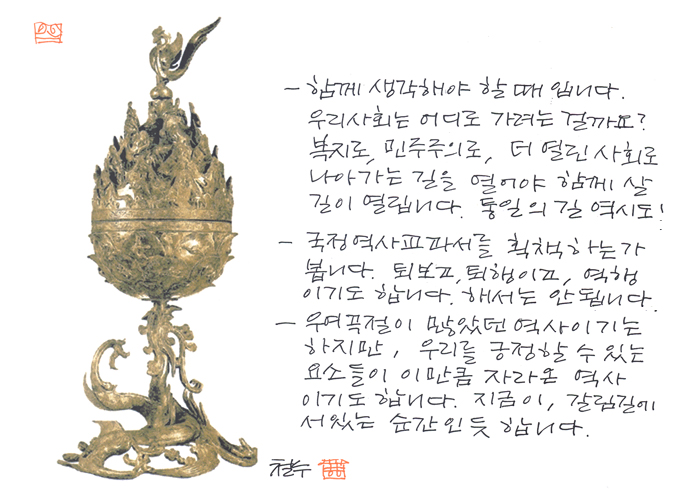 - 함께 생각해야 할 때 입니다.
우리사회는 어디로 가려는 걸까요?
복지로, 민주주의로, 더 열린 사회로
나아가는 길을 열어야 함께 살
길이 열립니다. 통일의 길 역시도!
- 국정역사교과서를 획책하는가
봅니다. 퇴보고, 퇴행이고, 역행
이기도 합니다. 해서는 안됩니다.
- 우여곡절이 많았던 역사이기는
하지만, 우리를 긍정할 수 있는
요소들이 이만큼 자라온 역사
이기도 합니다. 지금이, 갈림길에
서있는 순간인 듯 합니다.
철수